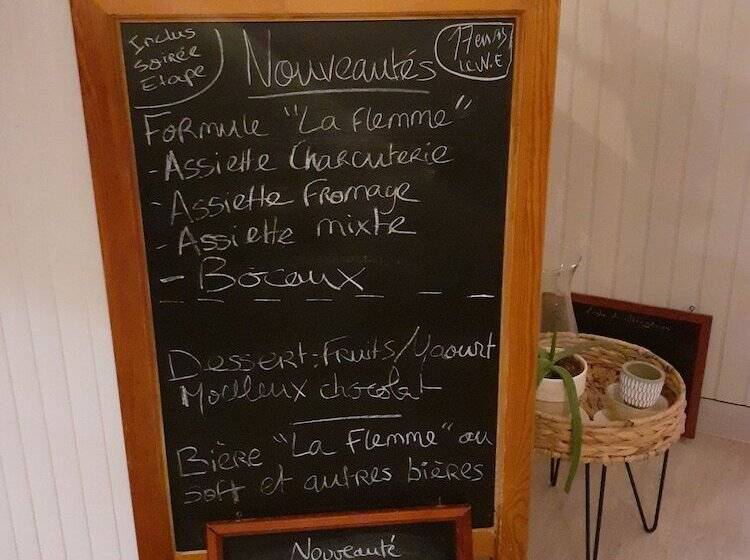 Inclus
Soirée
Etape
Nouveautés
Formule "La Flemme"
- Assiette Charcuterie
- Assiette Fromage
- Assiette mixte
- Bocaux
Dessert: Fruits/Yaourt
Moelleux chocolat
Bière "La Flemme" ou
soft et autres bières
Nouveauté